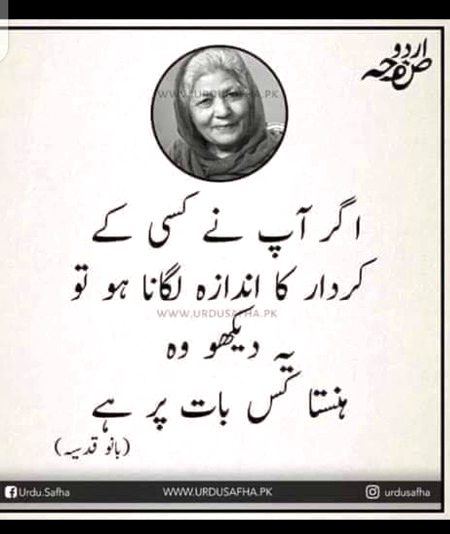 اردو
صفحہ
WWW.URDUSAFHA.PK
اگر آپ نے کسی کے
کردار کا اندازہ لگانا ہو تو
WWW.URDUSAFHA.PK
یہ دیکھو وہ
ہنستا کس بات پر ہے
(بانو قدسیہ)
Urdu.Safha WWW.URDUSAFHA.PK urdusafha